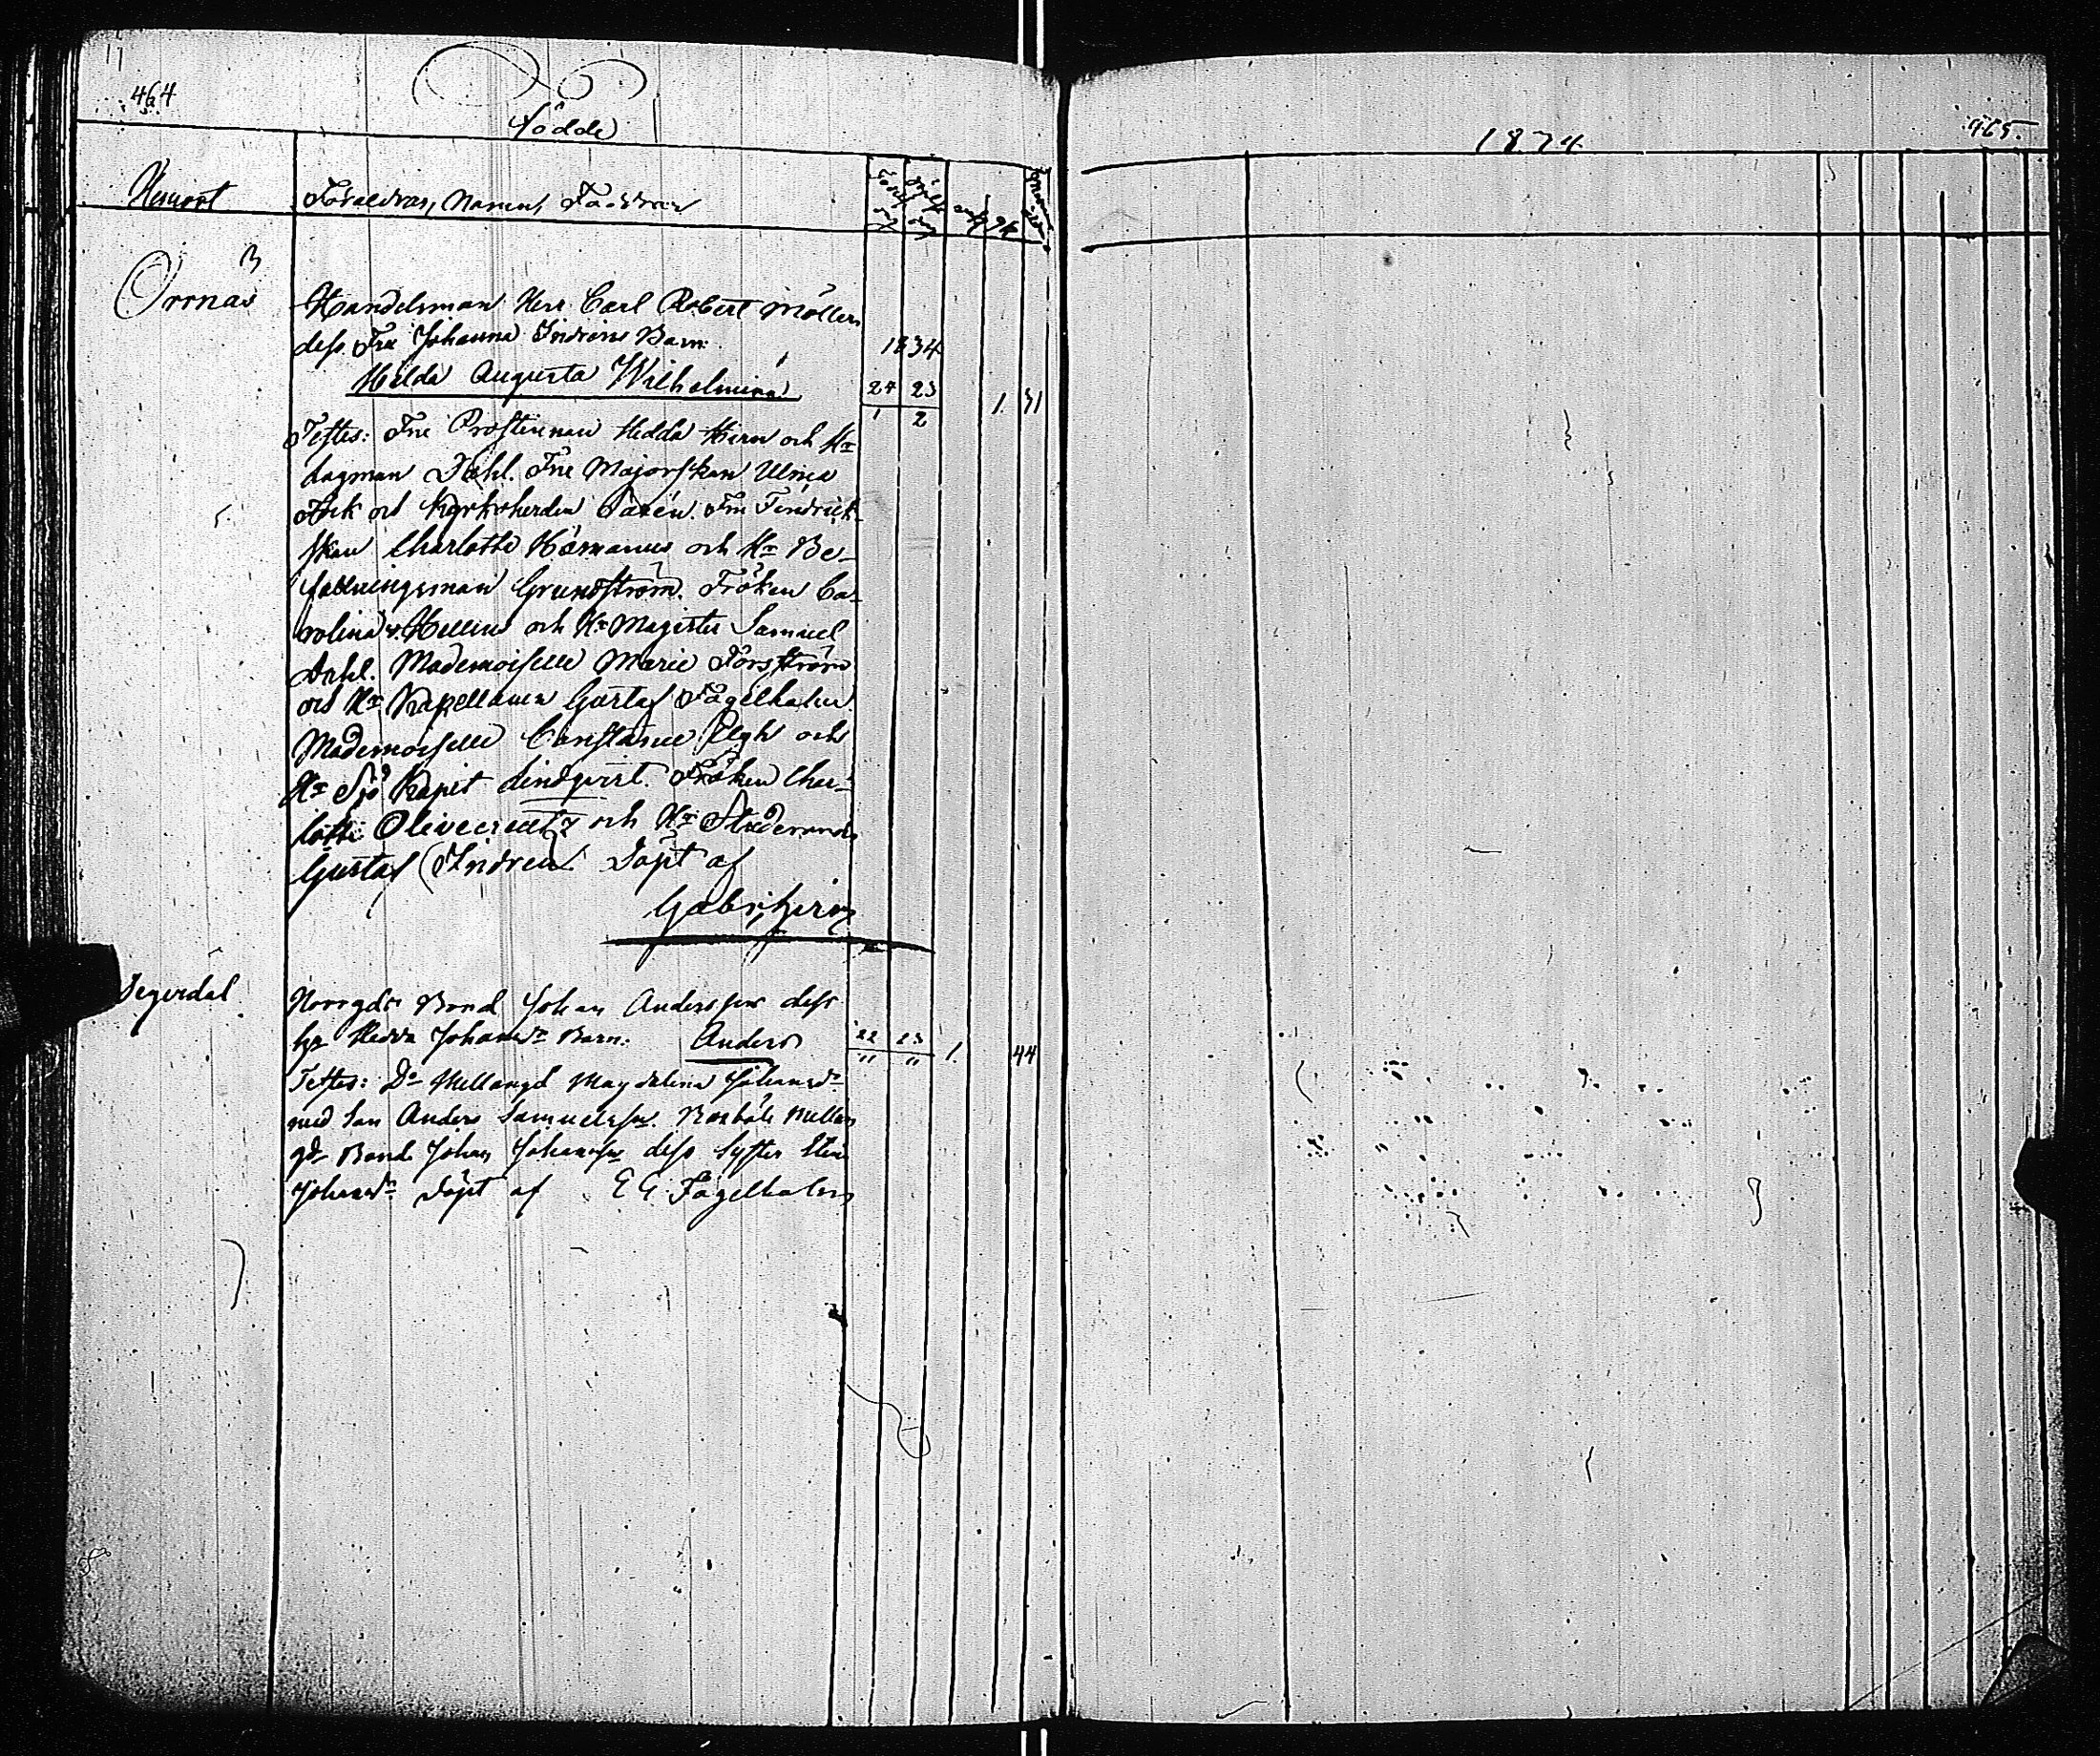 464
Födde
Hemort Föräldrar, Namn, Faddrar
Örrnäs
Handelsman Herr Carl Robert Möllers
dess Fru Johanna Indrens Barn:
1834
Hilda Augusta Wilhelmina
24 23 1. 31
1 2
Testes: Fru Prostinnan Hedda Hirn och Hr
Lagman Dahl. Fru Majorskan Ulrica
Fock och Kyrkoherden Fru Fendrick-
skan Charlotte och Hr Be-
fallningsman Grundström. Fröken Ca-
rolina v. Hellens och Hr Magister Samuel
Dahl. Mademoiselle Marie Forsström
och Hr Kapellanen Gustaf Fagelholm
Mademoiselle Constance Elgh och
Hr Sjö Kapit Lindqvist. Fröken Char-
lotte Olivecreutz och Hr Studerande
Gustaf Indren. Döpt af
Gabr. Hirn
Segerdal
Norrgds Bond Johan Andersson dess
hu Hedda Johansdr Barn: Anders
22 23 1. 44
" "
Testes: Do Mellangd Magdalena Johansdr
med Son Anders Samuelsson. Boxbåle Mellan
gds Bond Johan Johansson dess Syster Stina
Johansdr Döpt af E G Fagelholm
1874
465.